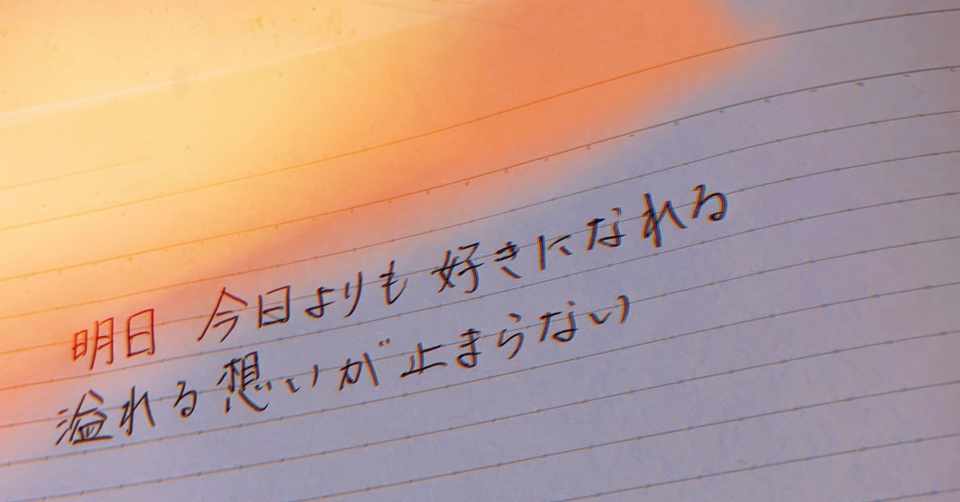 明日 今日よりも 好きになれる
溢れる想いが 止まらない